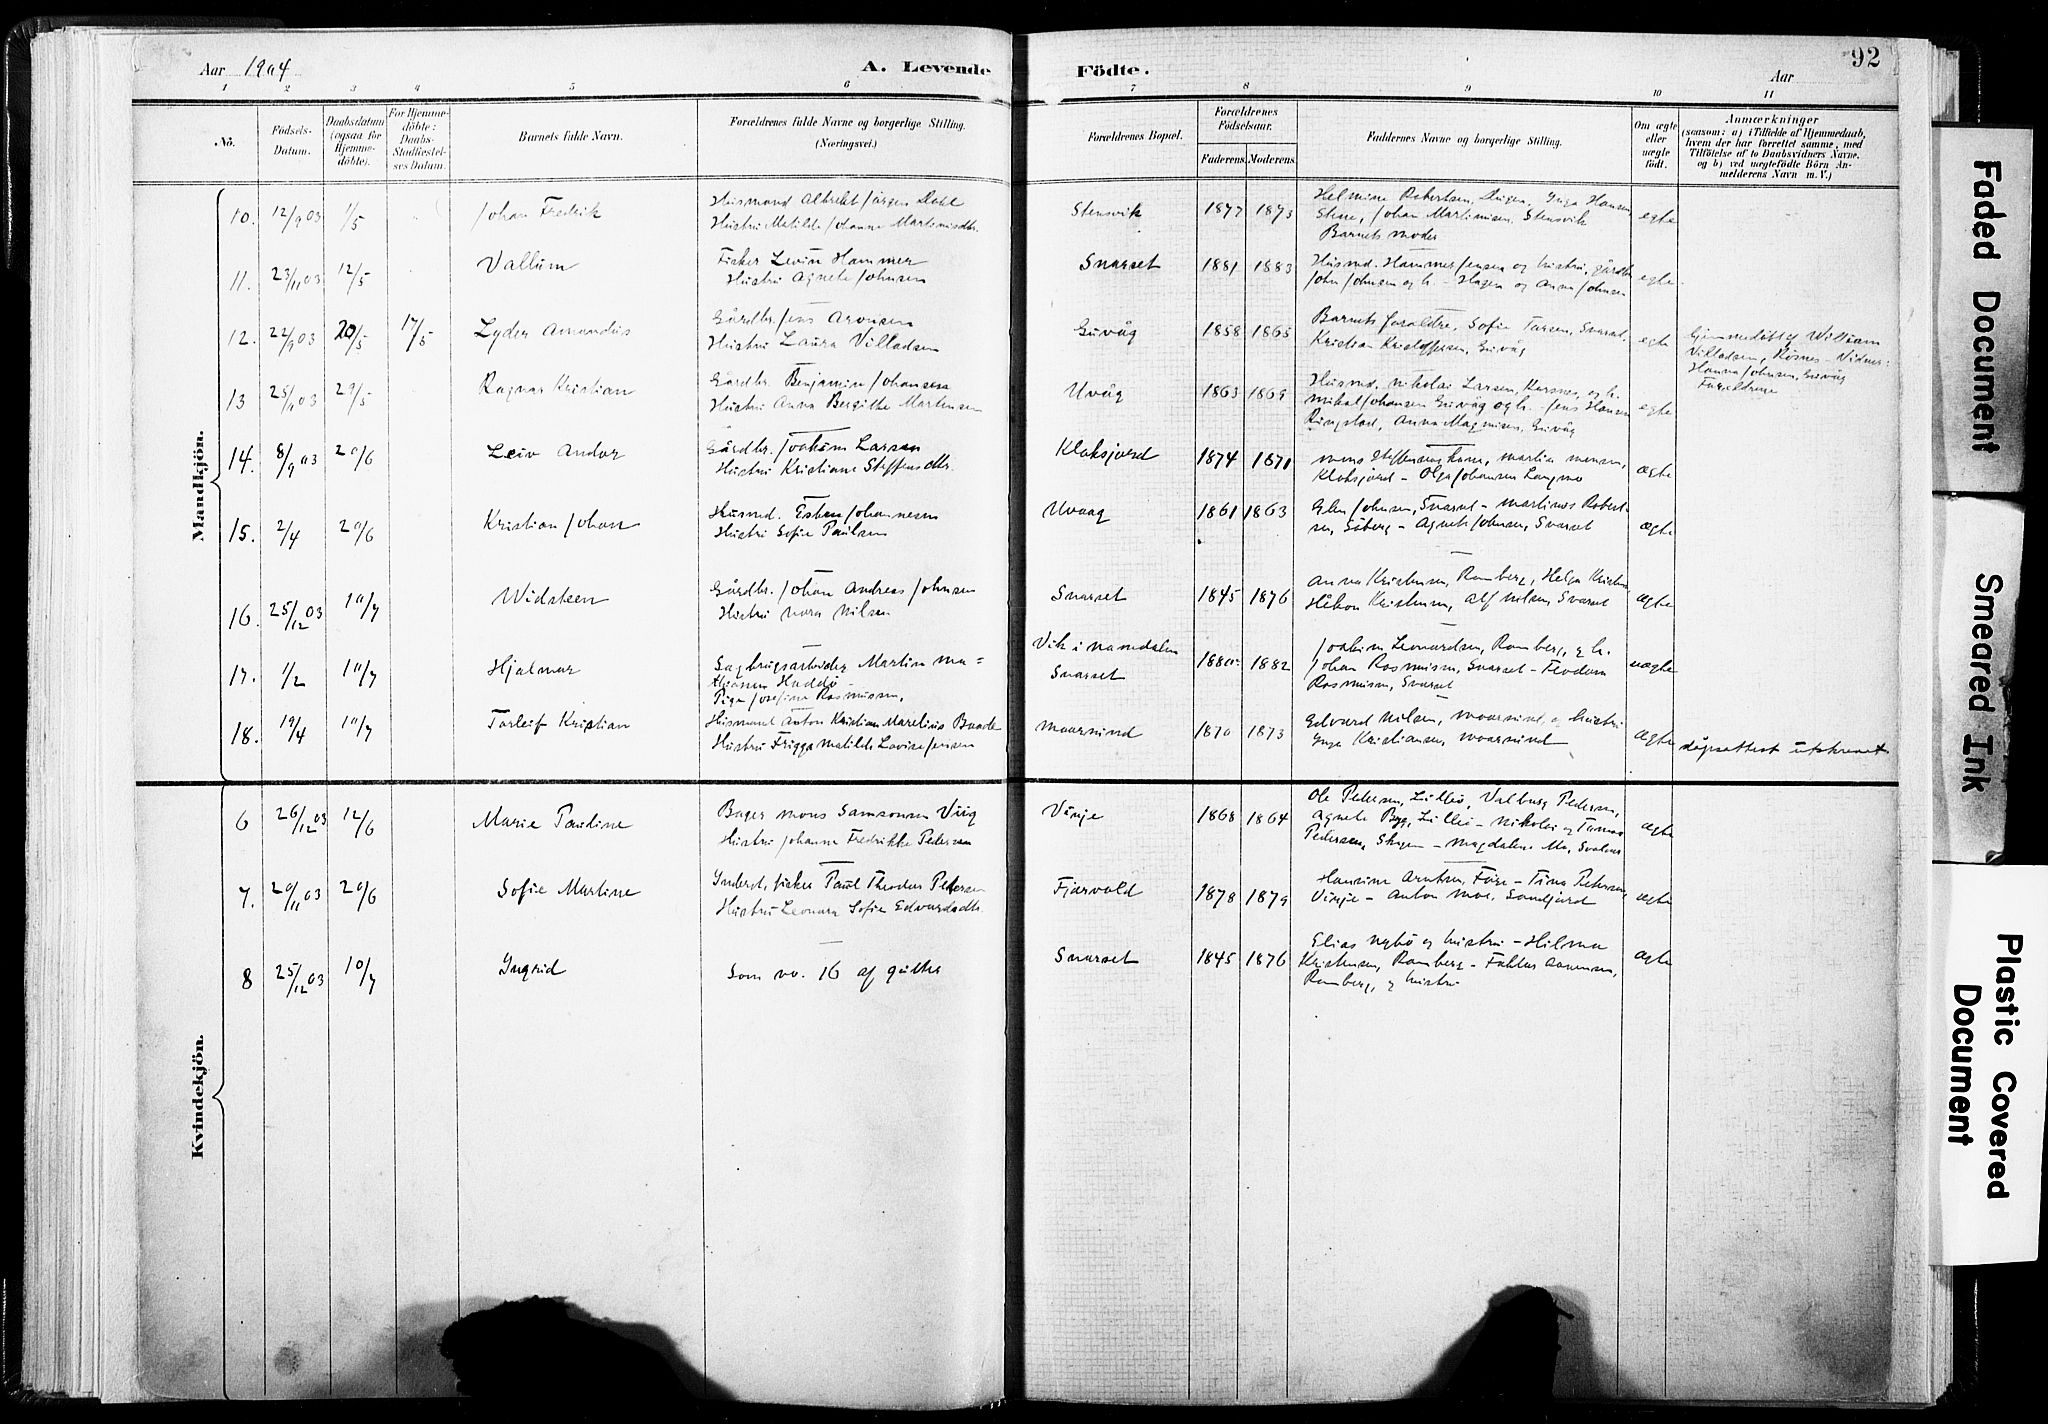 92
Aar 1904
A. Levende Födte.
Aar
1 2 3 4 5 6 7 8 9 10 11
No.
Födsels-Datum.
Daabsdatum (ogsaa for Hjemme-döbte).
For Hjemme-döbte: Daabs-Stadfæstel-ses Datum.
Barnets fulde Navn.
Forældrenes fulde Navne og borgerlige Stilling. (Næringsvei.)
Forældrenes Bopæl.
Forældrenes Födselsaar.
Faderens. Moderens.
Faddernes Navne og borgerlige Stilling.
Om ægte eller uægte født.
Anmærkninger
(saasom: a) i Tilfælde af Hjemmedaab,
hvem der har forrettet samme, med
Tilföielse af to Daabsvidners Navne.
og b) ved uægtefödte Börn An-
melderens Navn m. V.)
Mandkjön.
10. 12/9 03 1/5 Johan Fredrik
Husmand Albrekt Jørgen Dahl
Hustru Matilde Johanne Martinisdtr.
Stensvik 1877 1873
Helmine Robertsen, Inga Hansen
Stene, Johan Martinisen, Stensvik
Barnets moder
egte
11. 23/11 03 12/5 Vallum
Fisker Levin Hammer
Hustru Agnete Johnsen
Svarset 1881 1883
Husmd. Hammer Jensen og hustru, gårdbr.
John Johnsen og h. - Hagen og Anna Johnsen
egte
12. 22/9 03 20/5 17/5 Lyder Amandus
Gårdbr. Jens Aronsen
Hustru Laura Villadsen
Guvåg 1858 1865
Barnets forældre, Sofie Larsen, Svarset,
Kristian Kristoffersen, Guvåg
egte
Hjemmedøbt af William
Villadsen, - Vidner:
Hanna Johnsen, Guvåg
Forældrene
13 25/9 03 29/5 Ragnar Kristian
Gårdbr. Benjamin Johansen
Hustru Anna Bergithe Martinsen
Uvåg 1863 1869
Husmd. Nikolai Larsen, og h.
Mikal Johansen Guvåg og h. - Jens Hansen
Ringstad, Anna Magnusen, Guvåg
egte
14. 8/9 03 20/6 Leiv Andor
Gårdbr. Joakim Larsen
Hustru Kristiane Steffensdtr.
Klaksjord 1874 1871
Mons Steffensen, Martin Monsen,
Klaksjord - Olga Johansen Langmo
ægte
15. 2/4 20/6 Kristian Johan
Husmd. Esben Johannesen
Hustru Sofie Paulsen
Uvaag 1861 1863
Johnsen, Svarset - Martinus Robert-
sen, Søberg - Agnete Johnsen, Svarset
ægte
16. 25/12 03 10/7 Widsteen
Gårdbr. Johan Andreas Johnsen
Hustru Nora Nilsen
Svarset 1845 1876
Anna Kristensen, Ramberg, Helga Kristensen
Håkon Kristensen, Alf Nilsen, Svarset
ægte
17. 1/2 10/7 Hjalmar
Sagbrugsarbeider Martin Ma-
thisen Haddø -
Pige Josefine Rasmussen.
Vik i Namdalen
Svarset
1880 1882
Joakim Leonardsen, Ramberg, og h.
Johan Rasmusen, Svarset - Teodora
Rasmusen, Svarset
uægte
18. 19/4 10/7 Torleif Kristian
Husmand Anton Kristian Marelius Baade
Hustru Frigga Matilde Lovise Jensen
Maarsund 1870 1873
Edvard Nilsen, Maarsund, og hustru
Inga Kristiansen, Maarsund
ægte
dåpsattest utskrevet
Kvindekjön.
6 26/12 03 12/6 Marie Pauline
Bager Mons Samsonsen Viig
Hustru Johanne Fredrikke Pedersen
Vinje 1868 1864
Ole Pedersen, Lillø, Valborg Pedersen,
Agnete Byg, Lillø - Nikolai og
Pedersen, Skogen - Magdalene Mo,
ægte
7. 20/11 03 20/6 Sofie Martine
Inderst, fisker Paul Theodor Petersen
Hustru Leonora Sofie Edvardsdtr.
Fjærvold 1878 1879
Hansine Arntsen, - Tina Petersen,
Vinje - Anton Moe, Sandfjord
ægte
8 25/12 03 10/7 Ingrid
Som no. 16 af gutter
Svarset 1845 1876
Elias Nybø og hustru - Hilma
Kristensen, Ramberg -
Ramberg, og hustru
ægte
Faded Document
Smeared Ink
Plastic Covered
Document